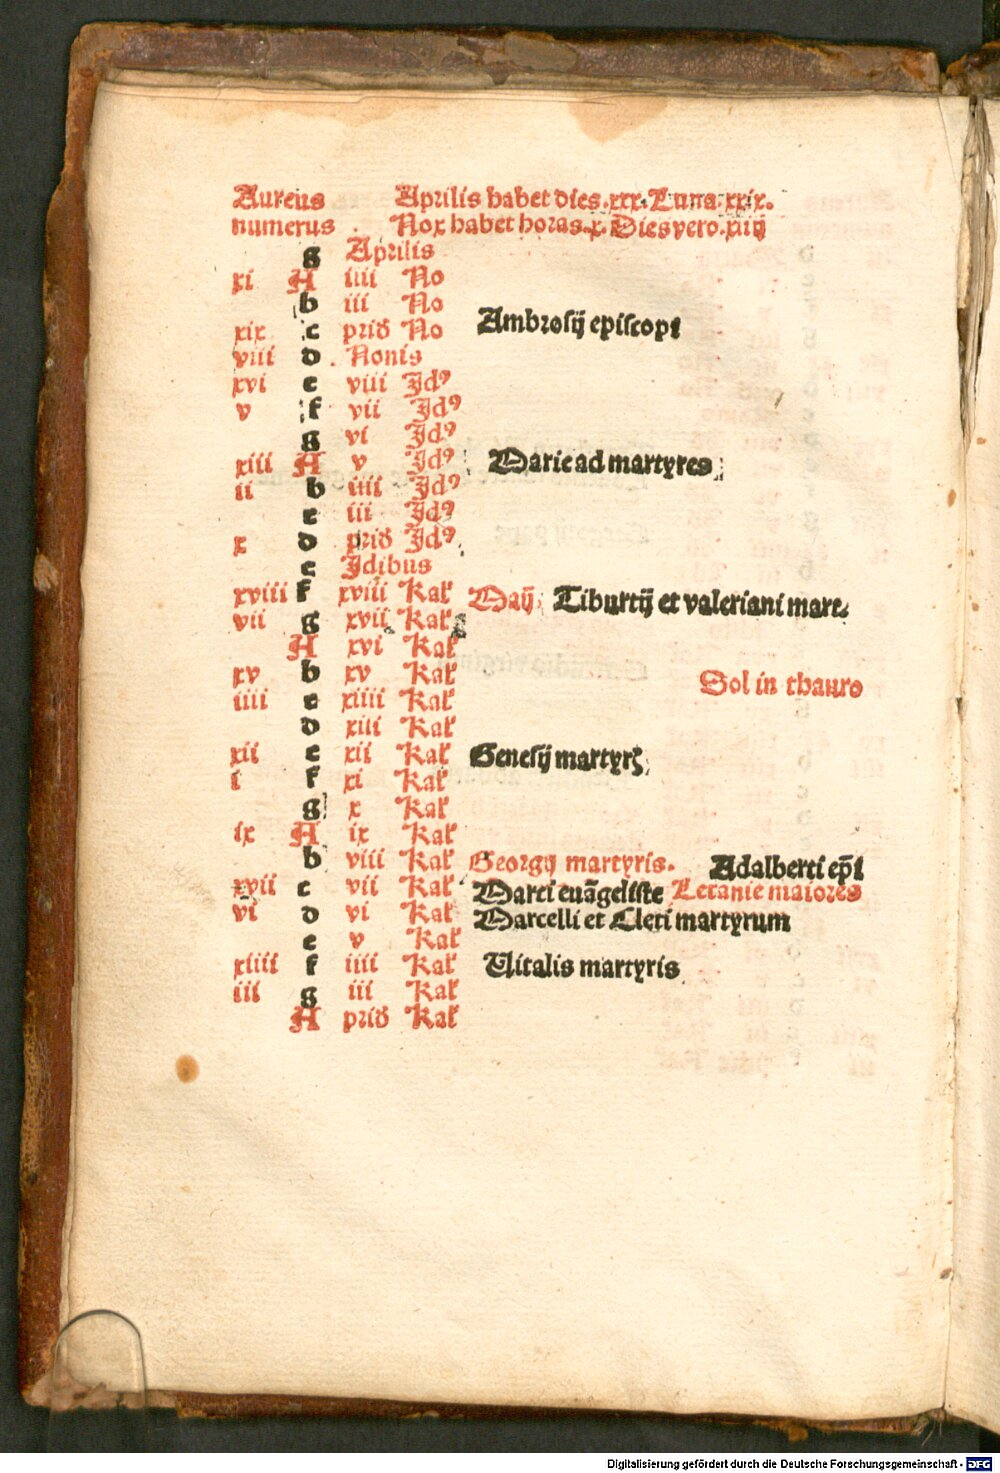 Aureus Aprilis habet dies .xxx. Luna .xxix.
numerus . Nox habet horas .x. Dies vero .xiiij
g Aprilis
xi A iiii No
b iii No
xix c prid No Ambrosij episcopi
viii d . Nonis
xvi e viii Jdꝰ
v f vii Jdꝰ
g vi Jdꝰ
xiii A v Jdꝰ Marie ad martyres
ii b iiii Jdꝰ
c iii Jdꝰ
x d prid Jdꝰ
e Jdibus
xviii f xviii Kal Maij Tiburtij et valeriani mart.
vii g xvii Kal
A xvi Kal
xv b xv Kal Sol in thauro
iiii c xiiii Kal
d xiii Kal
xii e xii Kal Genesij martyrs
i f xi Kal
g x Kal
ix A ix Kal
b viii Kal Georgij martyris. Adalberti ep̄i
xvii c vii Kal Marci euāgeliste Letanie maiores
vi d vi Kal Marcelli et Cleti martyrum
e v Kal
xiiii f iiii Kal Uitalis martyris
iii g iii Kal
A prid Kal
Digitalisierung gefördert durch die Deutsche Forschungsgemeinschaft - DFG